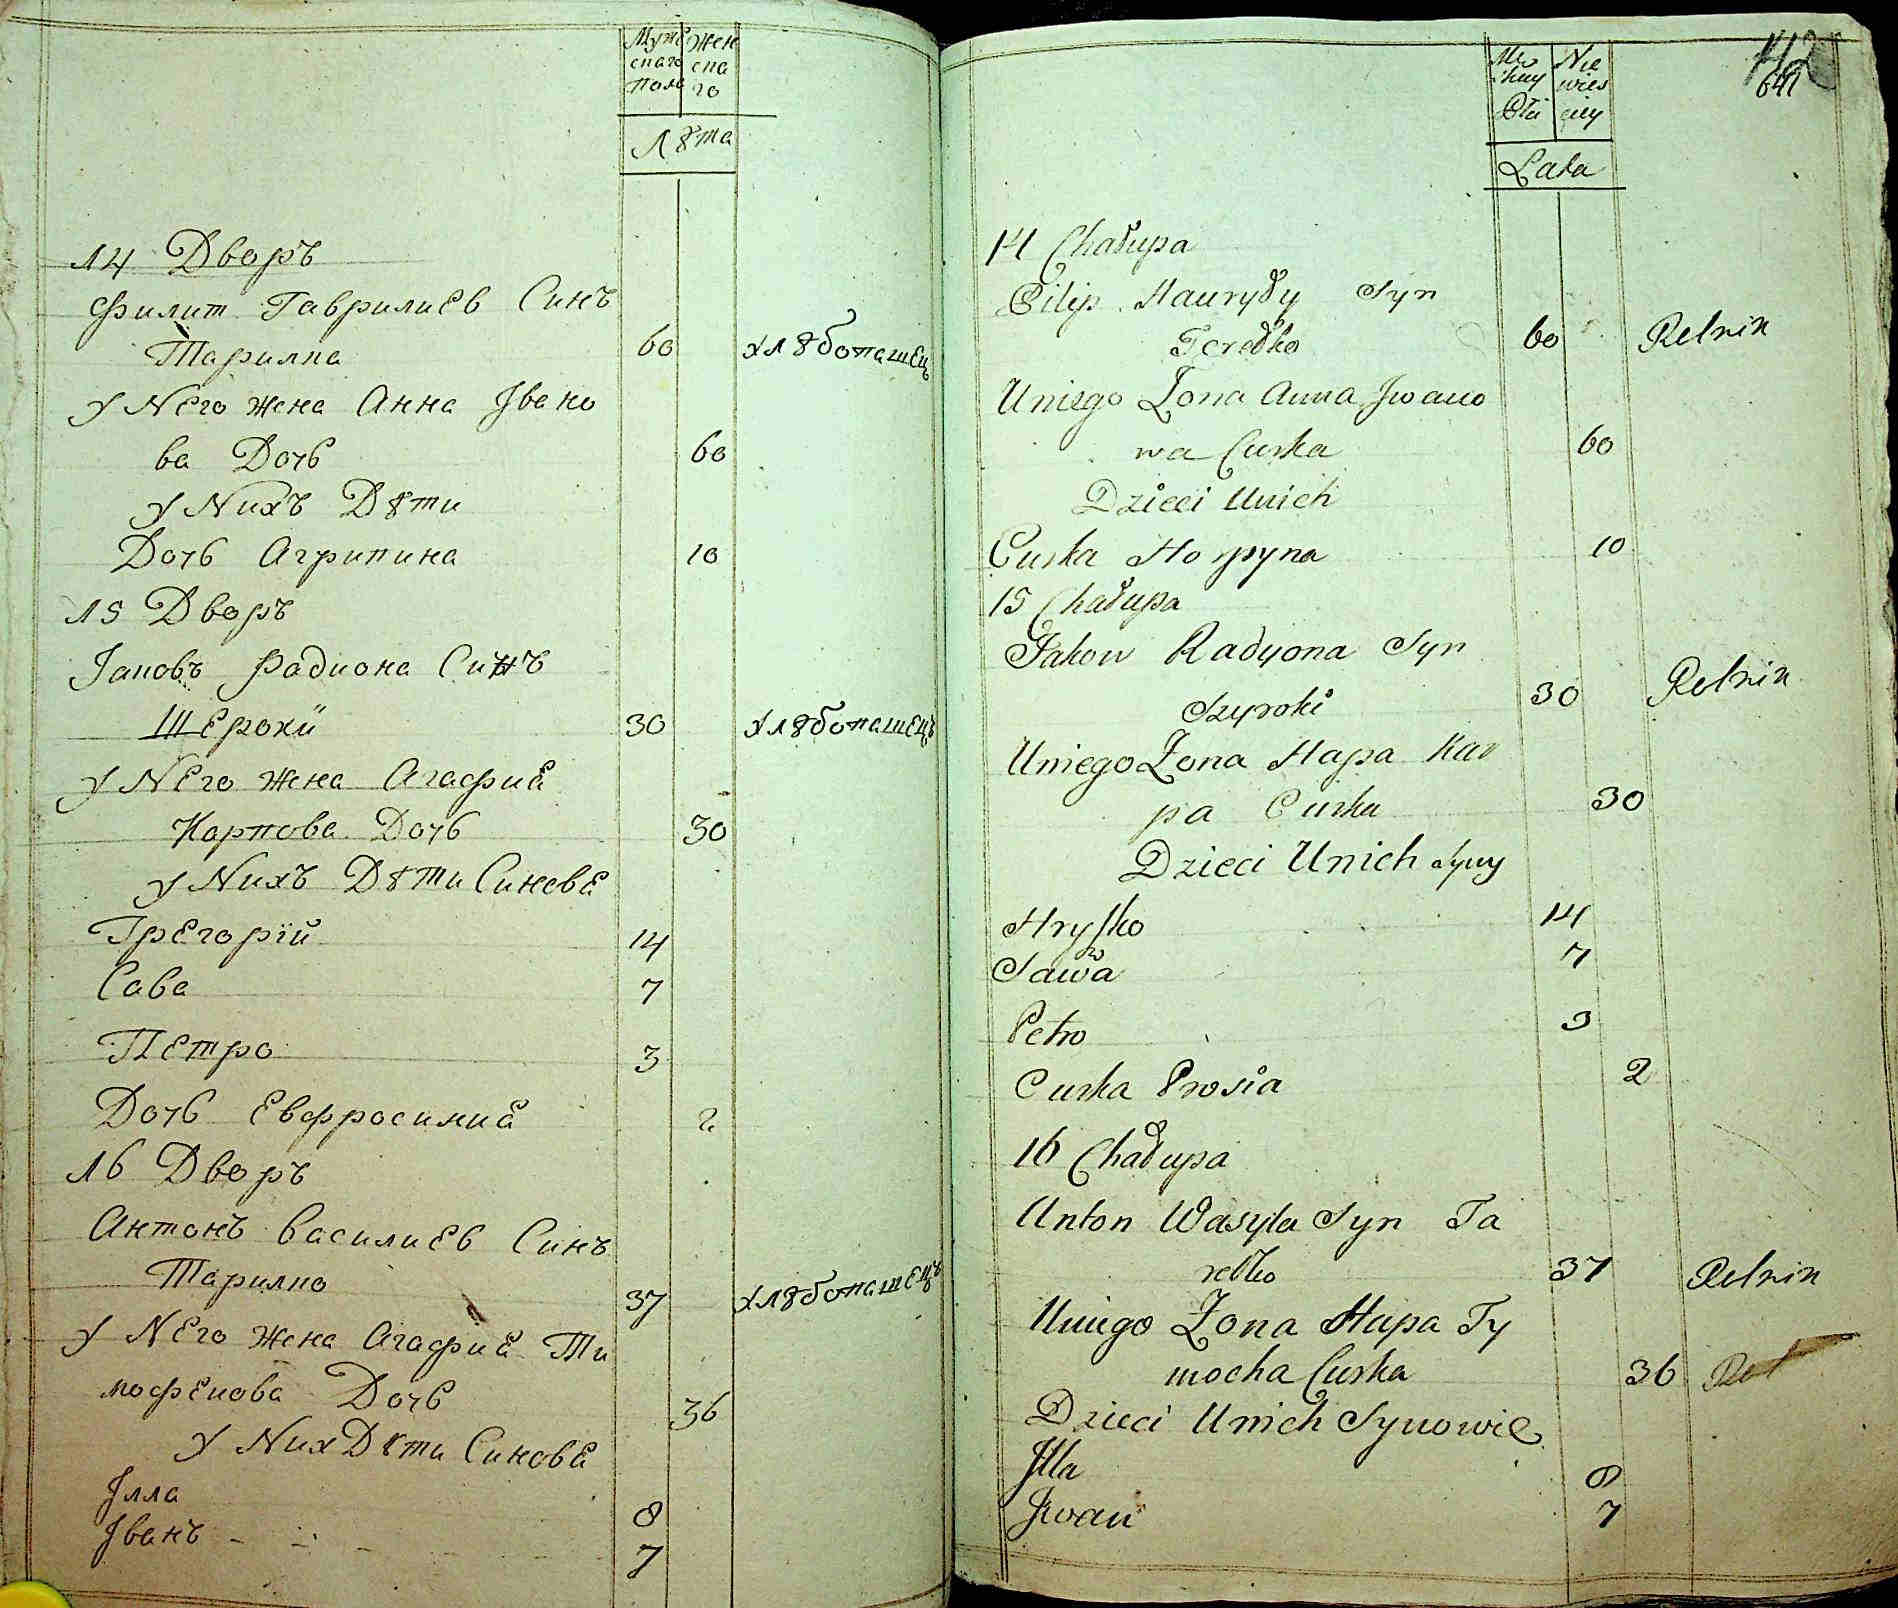 Мужескаго пола Женскаго
Лѣта
14 Дворъ
Филип Гаврилиев Синъ
Тарилка 60 хлѣбопашец
У Него жена Анна Івано
ва Дочь 60
У Нихъ Дѣти
Дочь Агрипина 10
15 Дворъ
Іаковъ Радиона Синъ
Шерокий 30 хлѣбопашецъ
У Него жена Агафиа
Карпова Дочь 30
У Нихъ Дѣти Синове
Грегорій 14
Сава 7
Петро 3
Дочь Евфросиниа 2
16 Дворъ
Антонъ Василиев Синъ
Тарилко 37 хлѣбопашецъ
У Него жена Агафиа Ти
мофеиова Дочь 36
У Них Дѣти Синове
Ілла 8
Іванъ 7
142
641
Męskiey Płci Niewiesciey
Lata
14 Chałupa
Pilip Hauryły Syn
Terełko 60 Rolnik
Uniego Zona Anna Iwano
wa Curka 60
Dzieci Unich
Curka Horpyna 10
15 Chałupa
Jakow Radyona Syn
Szyroki 30 Rolnik
Uniego Zona Hapa Kar
pa Curka 30
Dzieci Unich Syny
Hryſko 14
Sawa 7
Petro 3
Curka Prosia 2
16 Chałupa
Anton Wasyla Syn Ta
rełko 37 Rolnik
Uniego Zona Hapa Ty
mocha Curka 36 Rol
Dzieci Unich Synowie
Illa 8
Iwan 7